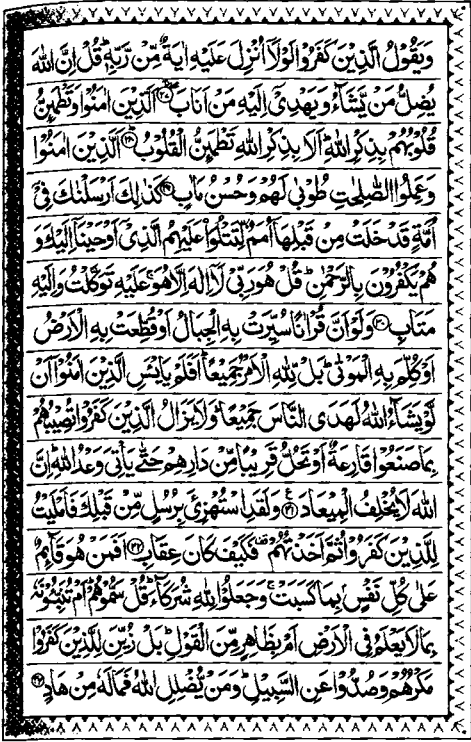 وَيَقُوۡلُ الَّذِيۡنَ كَفَرُوۡا لَوۡلَاۤ اُنۡزِلَ عَلَيۡهِ اٰيَةٌ مِّنۡ رَّبِّهٖؕ قُلۡ اِنَّ اللّٰهَ
يُضِلُّ مَنۡ يَّشَآءُ وَيَهۡدِىۡۤ اِلَيۡهِ مَنۡ اَنَابَ ۲۷ اَلَّذِيۡنَ اٰمَنُوۡا وَتَطۡمَٮِٕنُّ
قُلُوۡبُهُمۡ بِذِكۡرِ اللّٰهِؕ اَلَا بِذِكۡرِ اللّٰهِ تَطۡمَٮِٕنُّ الۡقُلُوۡبُ ۲۸ اَلَّذِيۡنَ اٰمَنُوۡا
وَعَمِلُوا الصّٰلِحٰتِ طُوۡبٰى لَهُمۡ وَحُسۡنُ مَاٰبٍ ۲۹ كَذٰلِكَ اَرۡسَلۡنٰكَ فِىۡۤ
اُمَّةٍ قَدۡ خَلَتۡ مِنۡ قَبۡلِهَاۤ اُمَمٌ لِّتَتۡلُوَا۟ عَلَيۡهِمُ الَّذِىۡۤ اَوۡحَيۡنَاۤ اِلَيۡكَ وَ
هُمۡ يَكۡفُرُوۡنَ بِالرَّحۡمٰنِؕ قُلۡ هُوَ رَبِّىۡ لَاۤ اِلٰهَ اِلَّا هُوَۚ عَلَيۡهِ تَوَكَّلۡتُ وَاِلَيۡهِ
مَتَابِ ۳۰ وَلَوۡ اَنَّ قُرۡاٰنًا سُيِّرَتۡ بِهِ الۡجِبَالُ اَوۡ قُطِّعَتۡ بِهِ الۡاَرۡضُ
اَوۡ كُلِّمَ بِهِ الۡمَوۡتٰىؕ بَلْ لِّلّٰهِ الۡاَمۡرُ جَمِيۡعًاؕ اَفَلَمۡ يَايۡــَٔسِ الَّذِيۡنَ اٰمَنُوۡۤا اَنۡ
لَّوۡ يَشَآءُ اللّٰهُ لَهَدَى النَّاسَ جَمِيۡعًاؕ وَلَا يَزَالُ الَّذِيۡنَ كَفَرُوۡا تُصِيۡبُهُمۡ
بِمَا صَنَعُوۡا قَارِعَةٌ اَوۡ تَحُلُّ قَرِيۡبًا مِّنۡ دَارِهِمۡ حَتّٰى يَاۡتِىَ وَعۡدُ اللّٰهِؕ اِنَّ
اللّٰهَ لَا يُخۡلِفُ الۡمِيۡعَادَ ۳۱ وَلَقَدِ اسۡتُهۡزِئَ بِرُسُلٍ مِّنۡ قَبۡلِكَ فَاَمۡلَيۡتُ
لِلَّذِيۡنَ كَفَرُوۡا ثُمَّ اَخَذۡتُهُمۡ فَكَيۡفَ كَانَ عِقَابِ ۳۲ اَفَمَنۡ هُوَ قَآٮِٕمٌ
عَلٰى كُلِّ نَفۡسٍۢ بِمَا كَسَبَتۡۚ وَجَعَلُوۡا لِلّٰهِ شُرَكَآءَؕ قُلۡ سَمُّوۡهُمۡؕ اَمۡ تُنَبِّـُٔوۡنَهٗ
بِمَا لَا يَعۡلَمُ فِى الۡاَرۡضِ اَمۡ بِظَاهِرٍ مِّنَ الۡقَوۡلِؕ بَلۡ زُيِّنَ لِلَّذِيۡنَ كَفَرُوۡا
مَكۡرُهُمۡ وَصُدُّوۡا عَنِ السَّبِيۡلِؕ وَمَنۡ يُّضۡلِلِ اللّٰهُ فَمَا لَهٗ مِنۡ هَادٍ ۳۳